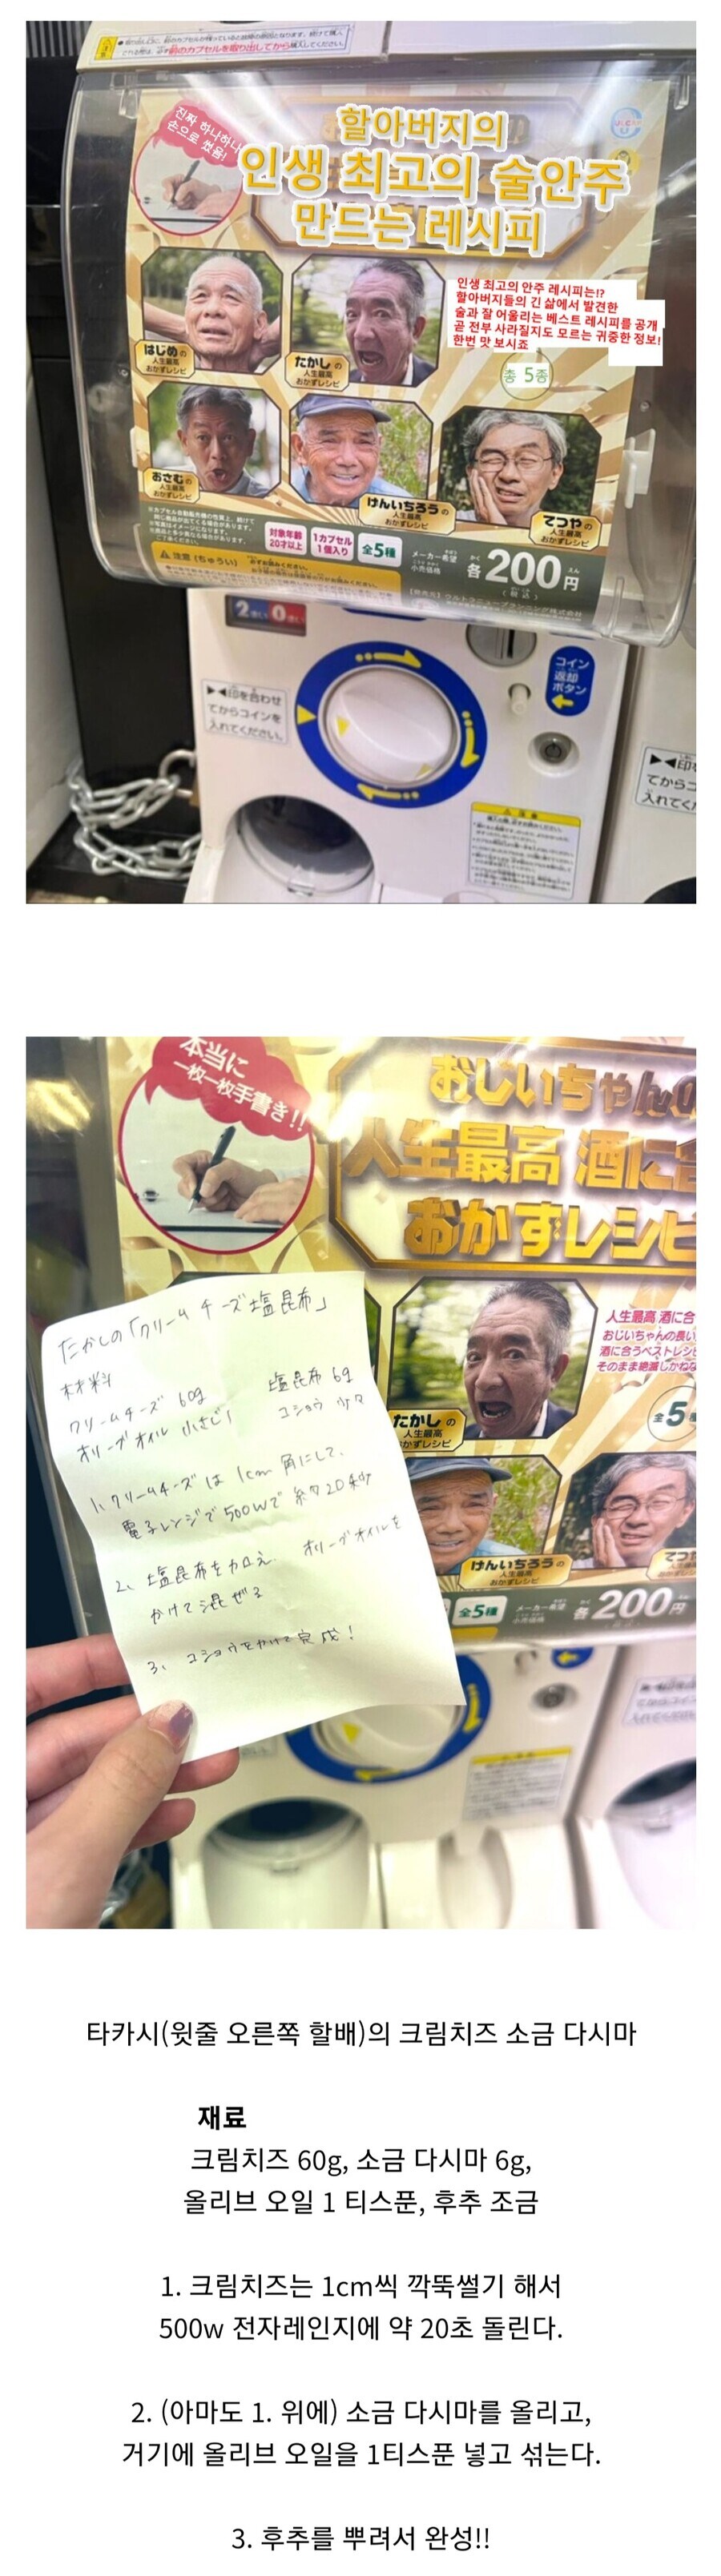 注意
前のカプセルを取り出してから購入してください。
진짜 하나하나
손으로 썼음!
할아버지의
인생 최고의 술안주
만드는 레시피
인생 최고의 안주 레시피는!?
할아버지들의 긴 삶에서 발견한
술과 잘 어울리는 베스트 레시피를 공개
곧 전부 사라질지도 모르는 귀중한 정보!
한번 맛 보시죠
총 5종
はじめの
人生最高
おかずレシピ
たかしの
人生最高
おかずレシピ
おさむの
人生最高
おかずレシピ
けんいちろうの
人生最高
おかずレシピ
てつやの
人生最高
おかずレシピ
対象年齢
20才以上
1カプセル
1個入り
全5種
メーカー希望
小売価格
各200円
(税込)
注意(ちゅうい)
▶◀印を合わせ
てからコインを
入れてください。
コイン
返却
ボタン
▶◀印を
てからコ
入れてく
本当に
一枚一枚手書き!!
おじいちゃんの
人生最高 酒に合
おかずレシピ
人生最高 酒に合
おじいちゃんの長い
酒に合うベストレシ
そのまま絶滅しかねな
全5種
たかしの
人生最高
おかずレシピ
けんいちろうの
人生最高
おかずレシピ
てつ
全5種
メーカー希望
小売価格
各200円
たかしの「クリームチーズ塩昆布」
材料
クリームチーズ 60g 塩昆布 6g
オリーブオイル 小さじ1 コショウ 少々
1、クリームチーズは 1cm 角にして、
電子レンジで500Wで 約20秒
2、塩昆布を加え オリーブオイルを
かけて混ぜる
3、コショウをかけて完成!
타카시(윗줄 오른쪽 할배)의 크림치즈 소금 다시마
재료
크림치즈 60g, 소금 다시마 6g,
올리브 오일 1 티스푼, 후추 조금
1. 크림치즈는 1cm씩 깍뚝썰기 해서
500w 전자레인지에 약 20초 돌린다.
2. (아마도 1. 위에) 소금 다시마를 올리고,
거기에 올리브 오일을 1티스푼 넣고 섞는다.
3. 후추를 뿌려서 완성!!